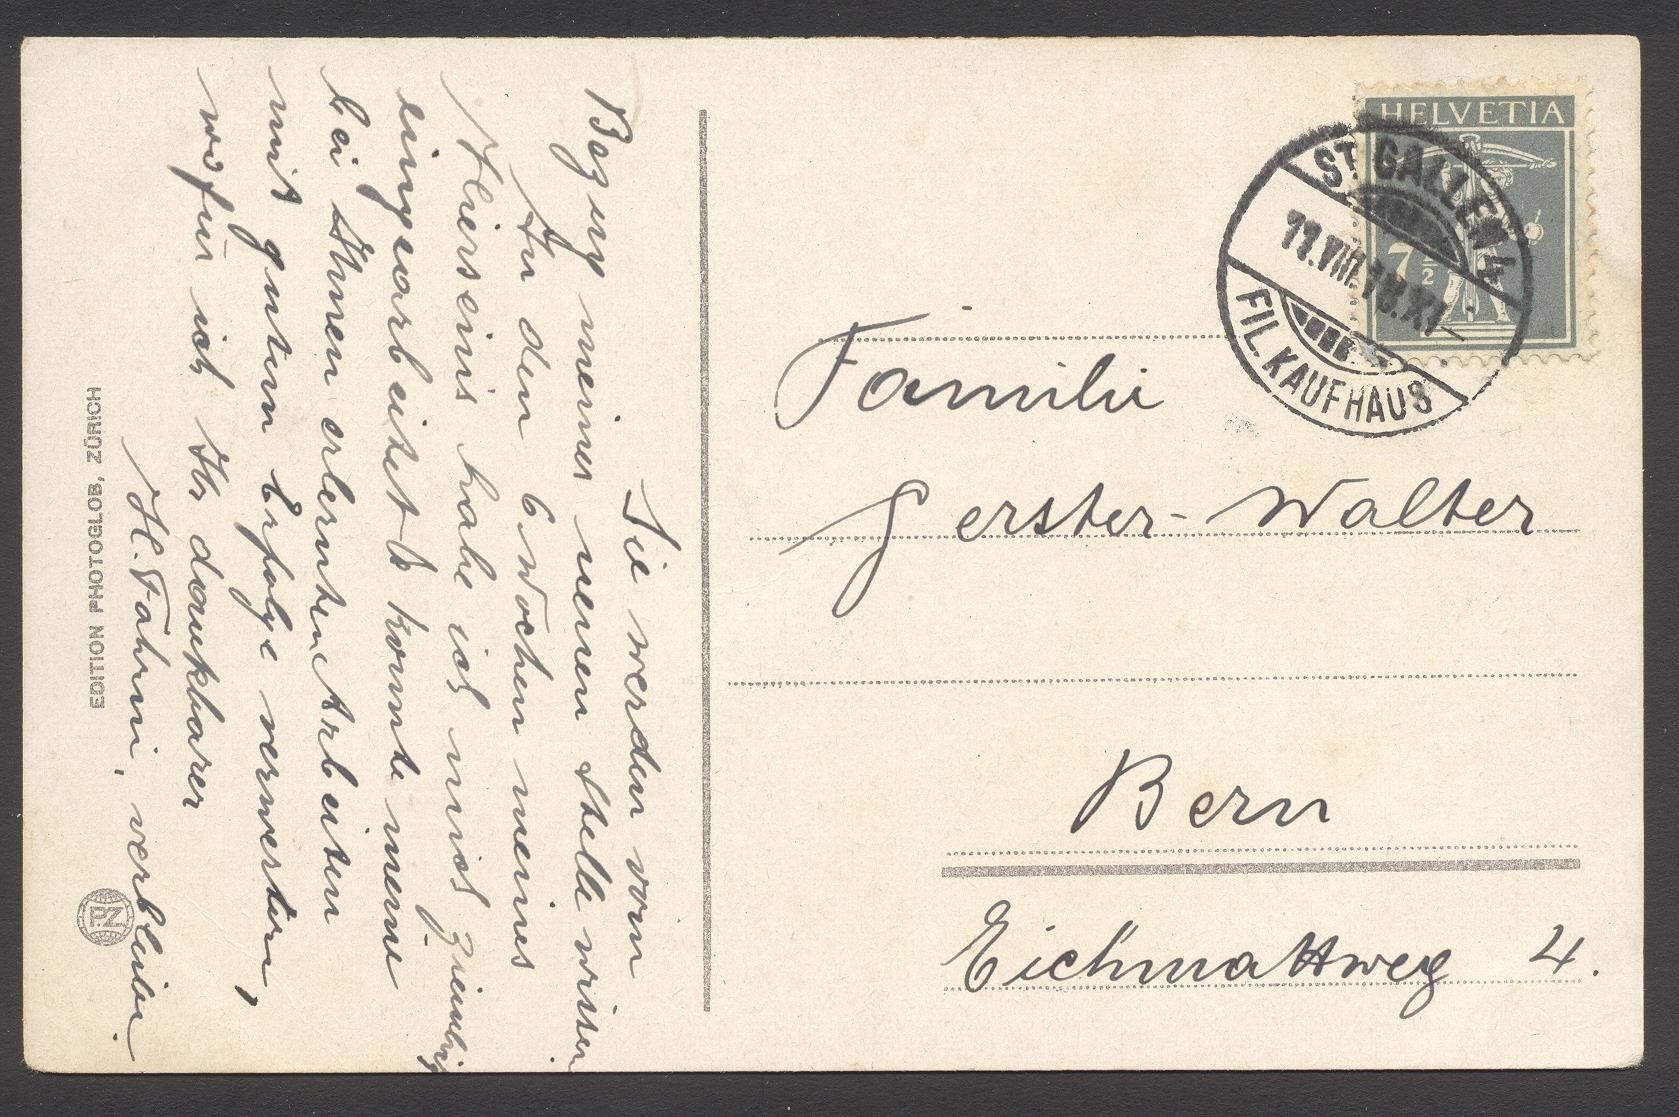 Sie werden vom
Bezug meiner neuen Stelle wissen
In den 6 Wochen meines
Hierseins habe ich mich ziemlich
eingearbeitet & konnte meine
bei Ihnen erlernten Arbeiten
mit gutem Erfolge verwerten,
wofür ich Ihr dankbarer
H. Fahrni, verbleibe.
EDITION PHOTOGLOB, ZÜRICH
PZ
HELVETIA
7 1/2
ST. GALLEN 4
11.VIII.18.XI-
FIL. KAUFHAUS
Familie
Gerster-Walter
Bern
Eichmattweg 4.